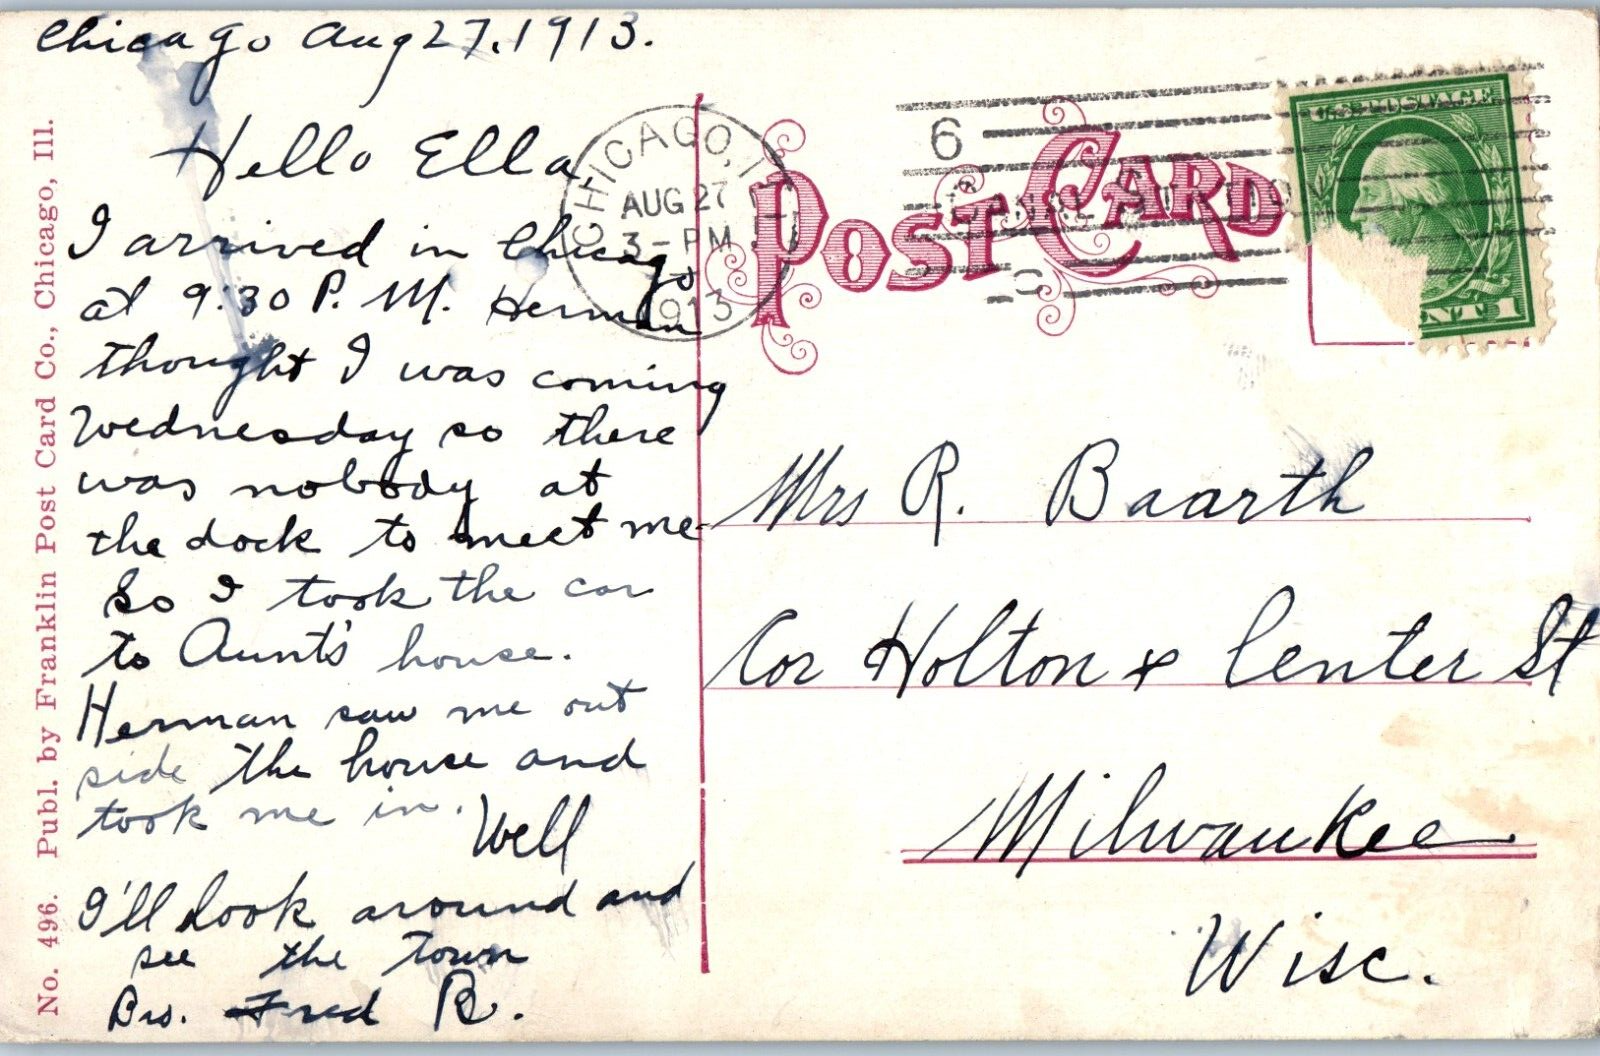 Chicago Aug 27, 1913.
Hello Ella,
I arrived in Chicago
at 9:30 P. M. Herman
thought I was coming
Wednesday so there
was nobody at
the dock to meet me
So I took the car
to Aunt's house.
Herman saw me out
side the house and
took me in. Well
I'll look around and
see the town
Bro. Fred B.
No. 496. Publ. by Franklin Post Card Co., Chicago, Ill.
POST CARD
CHICAGO, ILL.
AUG 27
3-PM
1913
6
CANAL STATION
C
U.S. POSTAGE
1
Mrs R. Baarth
Cor Holton & Center St
Milwaukee
Wisc.